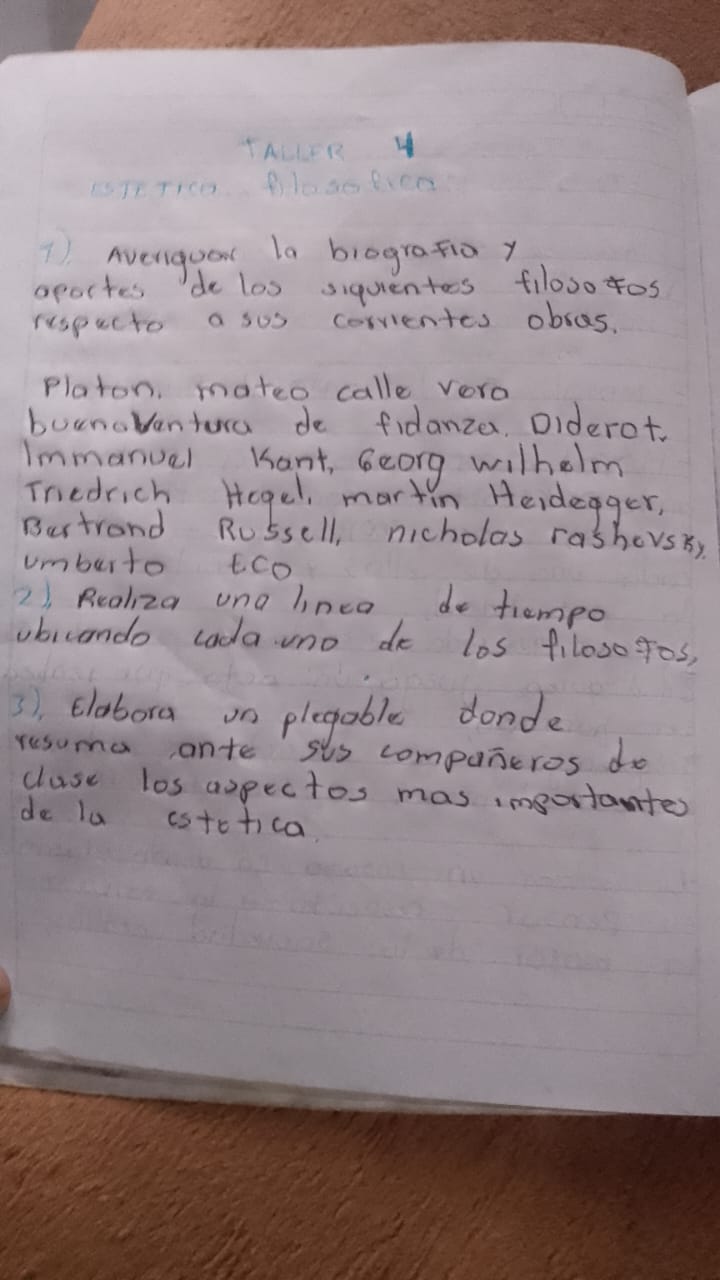 TALLER 4
ESTETICA filosofica
1) Averiguar la biografia y
aportes de los siquientes filosofos
respecto a sus corrientes obras.
Platon, mateo calle vera
buenaventura de fidanza, Diderot,
Immanuel Kant, Georg wilhelm
Friedrich Hegel, martin Heidegger,
Bertrand Russell, nicholas rashevsky,
umberto Eco
2), Realiza una linea de tiempo
ubicando cada uno de los filosofos,
3), Elabora un plegable donde
resuma ante sus compañeros de
clase los aspectos mas importantes
de la estetica.